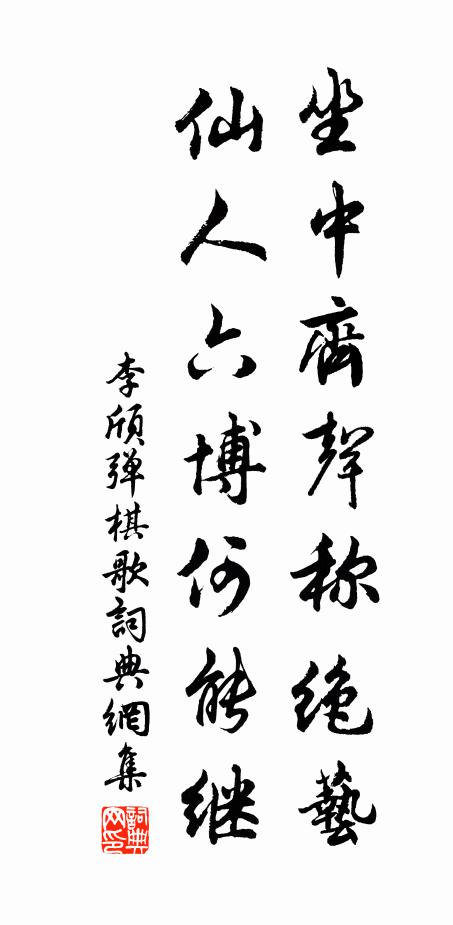 坐中齊聲称绝藝
仙人六博何能继
李頎弹棋歌詞典網集
詞典网印